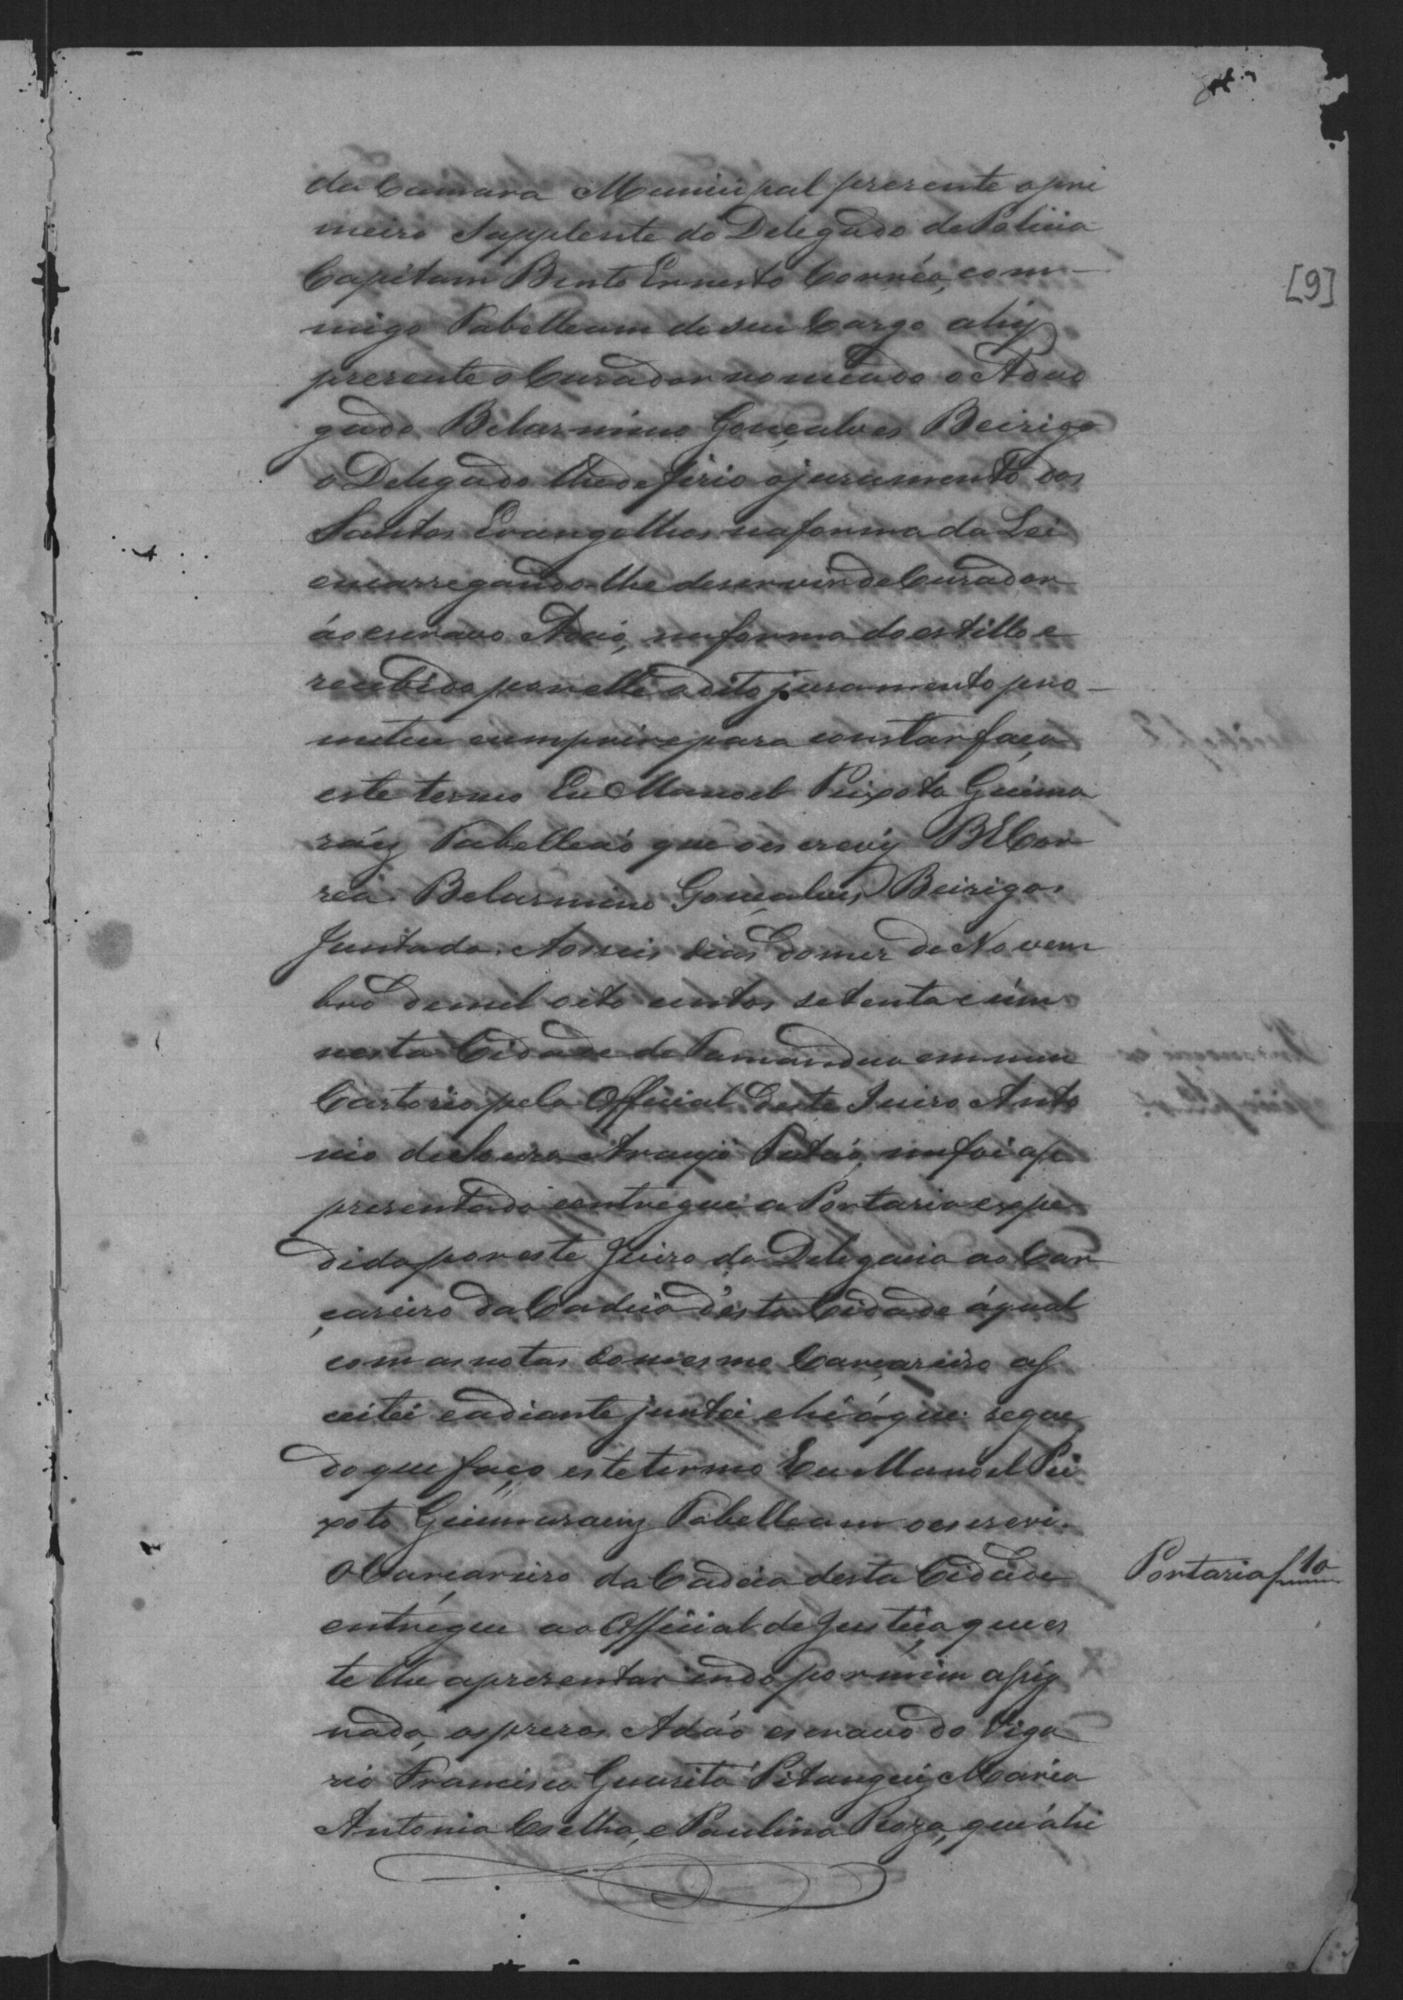 [9]
da Camara Municipal presente o pri
meiro Supplente do Delegado de Policia
Capitam Bento Ernesto Corrêa, com-
migo Tabelleam de seu Cargo ahy
presente o Curador nomiado o Advo
gado Belarmino Gonçalves Beirigo
o Delegado lhe deferio o juramento dos
Santos Evangelhos na forma da Lei
encarregando-lhe de servir de Curador
áo escravo Adaó, na forma do estillo e
recebido por elle o dito juramento pro-
meteu cumprir e para constar faço
este termo Eu Manoel Peixoto Guima
ráez Tabelleaó que o escrevy B E Cor
rêa Belarmino Gonçalves Beirigo.
Juntada. Aos seis dias do mez de Novem
bro de mil oito centos setenta e úm
nesta Cidade de Tamandua em meu
Cartorio pelo Official deste Juizo Anto
nio de Araujo me foi ap
presentado e entregue a Portaria expe
dida por este Juizo da Delegacia ao Car
çareiro da Cadeia d'esta Cidade á qual
com as notas do mesmo Carçareiro ac
ceitei e adiante juntei e hé á que segue
do que faço este termo Eu Manoel Pei
xoto Guimaraez Tabelleam o escrevi.
O Carçareiro da Cadeia desta Cidade
entregue ao Official de Justiça que es
te lhe apresentar indo por mim assig
nado, os prezos Adáo escravo do Viga
rio Francisco Guarita Pitanguy, Maria
Antonia Coelha, e Paulina Roza, que áhi
Portaria f 10